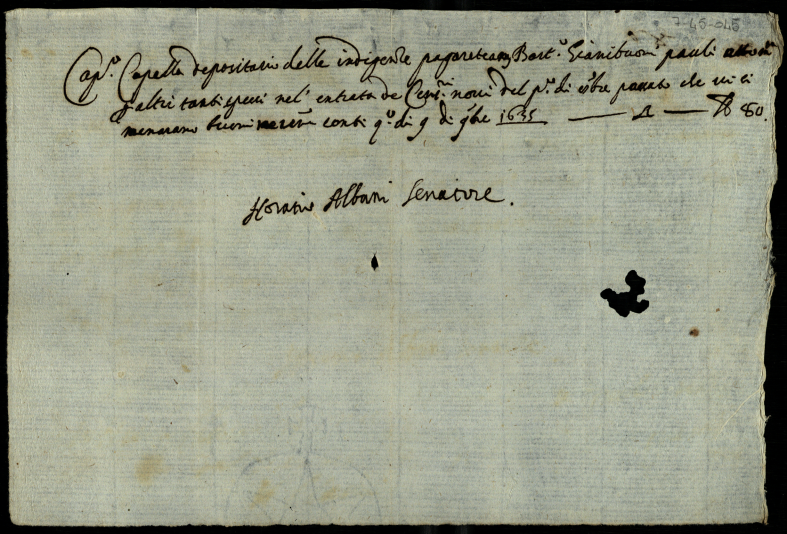 7-45-045
Cap.º Capella depositario delle indigenze pagarete a m Bart.º Gianibuoni pauli
p altri tanti spesi nel' entrata de Cens.ri novi del p.º di 8bre passato che vi si
menarano buoni conti q.º di 9 di 9bre 1635 80.
Horatio Albani Senatore.